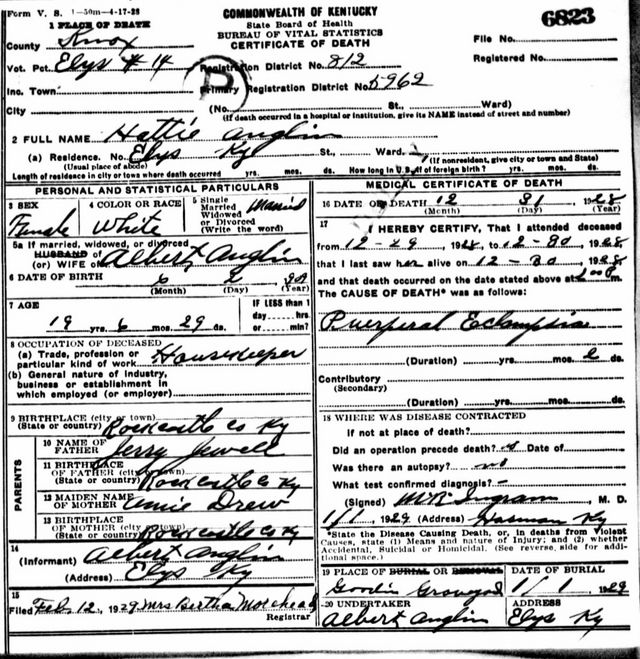 Form V. S. 1-50m-4-17-28
COMMONWEALTH OF KENTUCKY
State Board of Health
BUREAU OF VITAL STATISTICS
CERTIFICATE OF DEATH
6823
1 PLACE OF DEATH
County Knox
File No.
Vot. Pct. Elys # 14
Registration District No. 812
Registered No.
Inc. Town
Primary Registration District No. 5962
City (No. St., Ward)
(If death occurred in a hospital or institution, give its NAME instead of street and number)
2 FULL NAME Hattie Anglin
(a) Residence. No. Elys Ky St., Ward.
(Usual place of abode) (If nonresident, give city or town and State)
Length of residence in city or town where death occurred yrs. mos. ds. How long in U.S. if of foreign birth? yrs. mos. ds.
PERSONAL AND STATISTICAL PARTICULARS
3 SEX Female
4 COLOR OR RACE White
5 Single Married Widowed or Divorced (Write the word) Married
5a If married, widowed, or divorced
HUSBAND of
(or) WIFE of Albert Anglin
6 DATE OF BIRTH 6 2
(Month) (Day) (Year)
7 AGE
19 yrs. 6 mos. 29 ds.
IF LESS than 1 day----hrs or----min?
8 OCCUPATION OF DECEASED
(a) Trade, profession or particular kind of work Housekeeper
(b) General nature of industry, business or establishment in which employed (or employer)
9 BIRTHPLACE (city or town)
(State or country) Rockcastle Co Ky
PARENTS
10 NAME OF FATHER Jerry Jewell
11 BIRTHPLACE OF FATHER (city or town)
(State or country) Rockcastle Co Ky
12 MAIDEN NAME OF MOTHER Amie Drew
13 BIRTHPLACE OF MOTHER (city or town)
(State or country) Rockcastle Co Ky
14
(Informant) Albert Anglin
(Address) Elys Ky
15
Filed Feb. 12, 1929 Mrs Bertha Morehead
Registrar
MEDICAL CERTIFICATE OF DEATH
16 DATE OF DEATH 12 31 1928
(Month) (Day) (Year)
17
I HEREBY CERTIFY, That I attended deceased
from 12-29, 1928, to 12-30, 1928
that I last saw her alive on 12-30, 1928
and that death occurred on the date stated above at m.
The CAUSE OF DEATH* was as follows:
Puerperal Eclampsia
(Duration) yrs. mos. 2 ds.
Contributory
(Secondary)
(Duration) yrs. mos. ds.
18 WHERE WAS DISEASE CONTRACTED
If not at place of death?
Did an operation precede death? Date of
Was there an autopsy? no
What test confirmed diagnosis?
(Signed) M R Ingram, M. D.
1/1, 1929 (Address) Ky
*State the Disease Causing Death, or, in deaths from Violent
Causes, state (1) Means and nature of Injury; and (2) whether
Accidental, Suicidal or Homicidal. (See reverse side for additional space.)
19 PLACE OF BURIAL OR REMOVAL
DATE OF BURIAL
Goodin Graveyard 1/1 1929
20 UNDERTAKER
ADDRESS
Albert Anglin Elys Ky